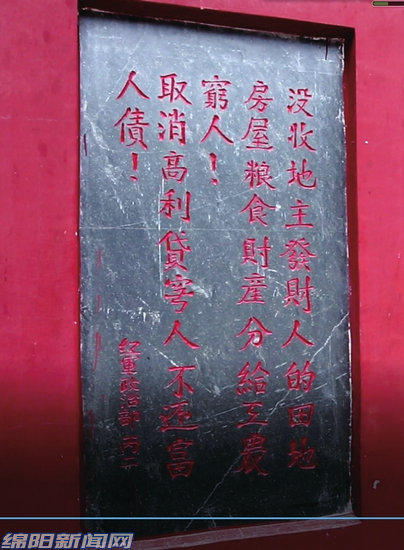 没收地主發財人的田地
房屋粮食財產分給工農
窮人！
取消高利貸穷人不还富
人債！
红軍政治部
绵阳新闻网